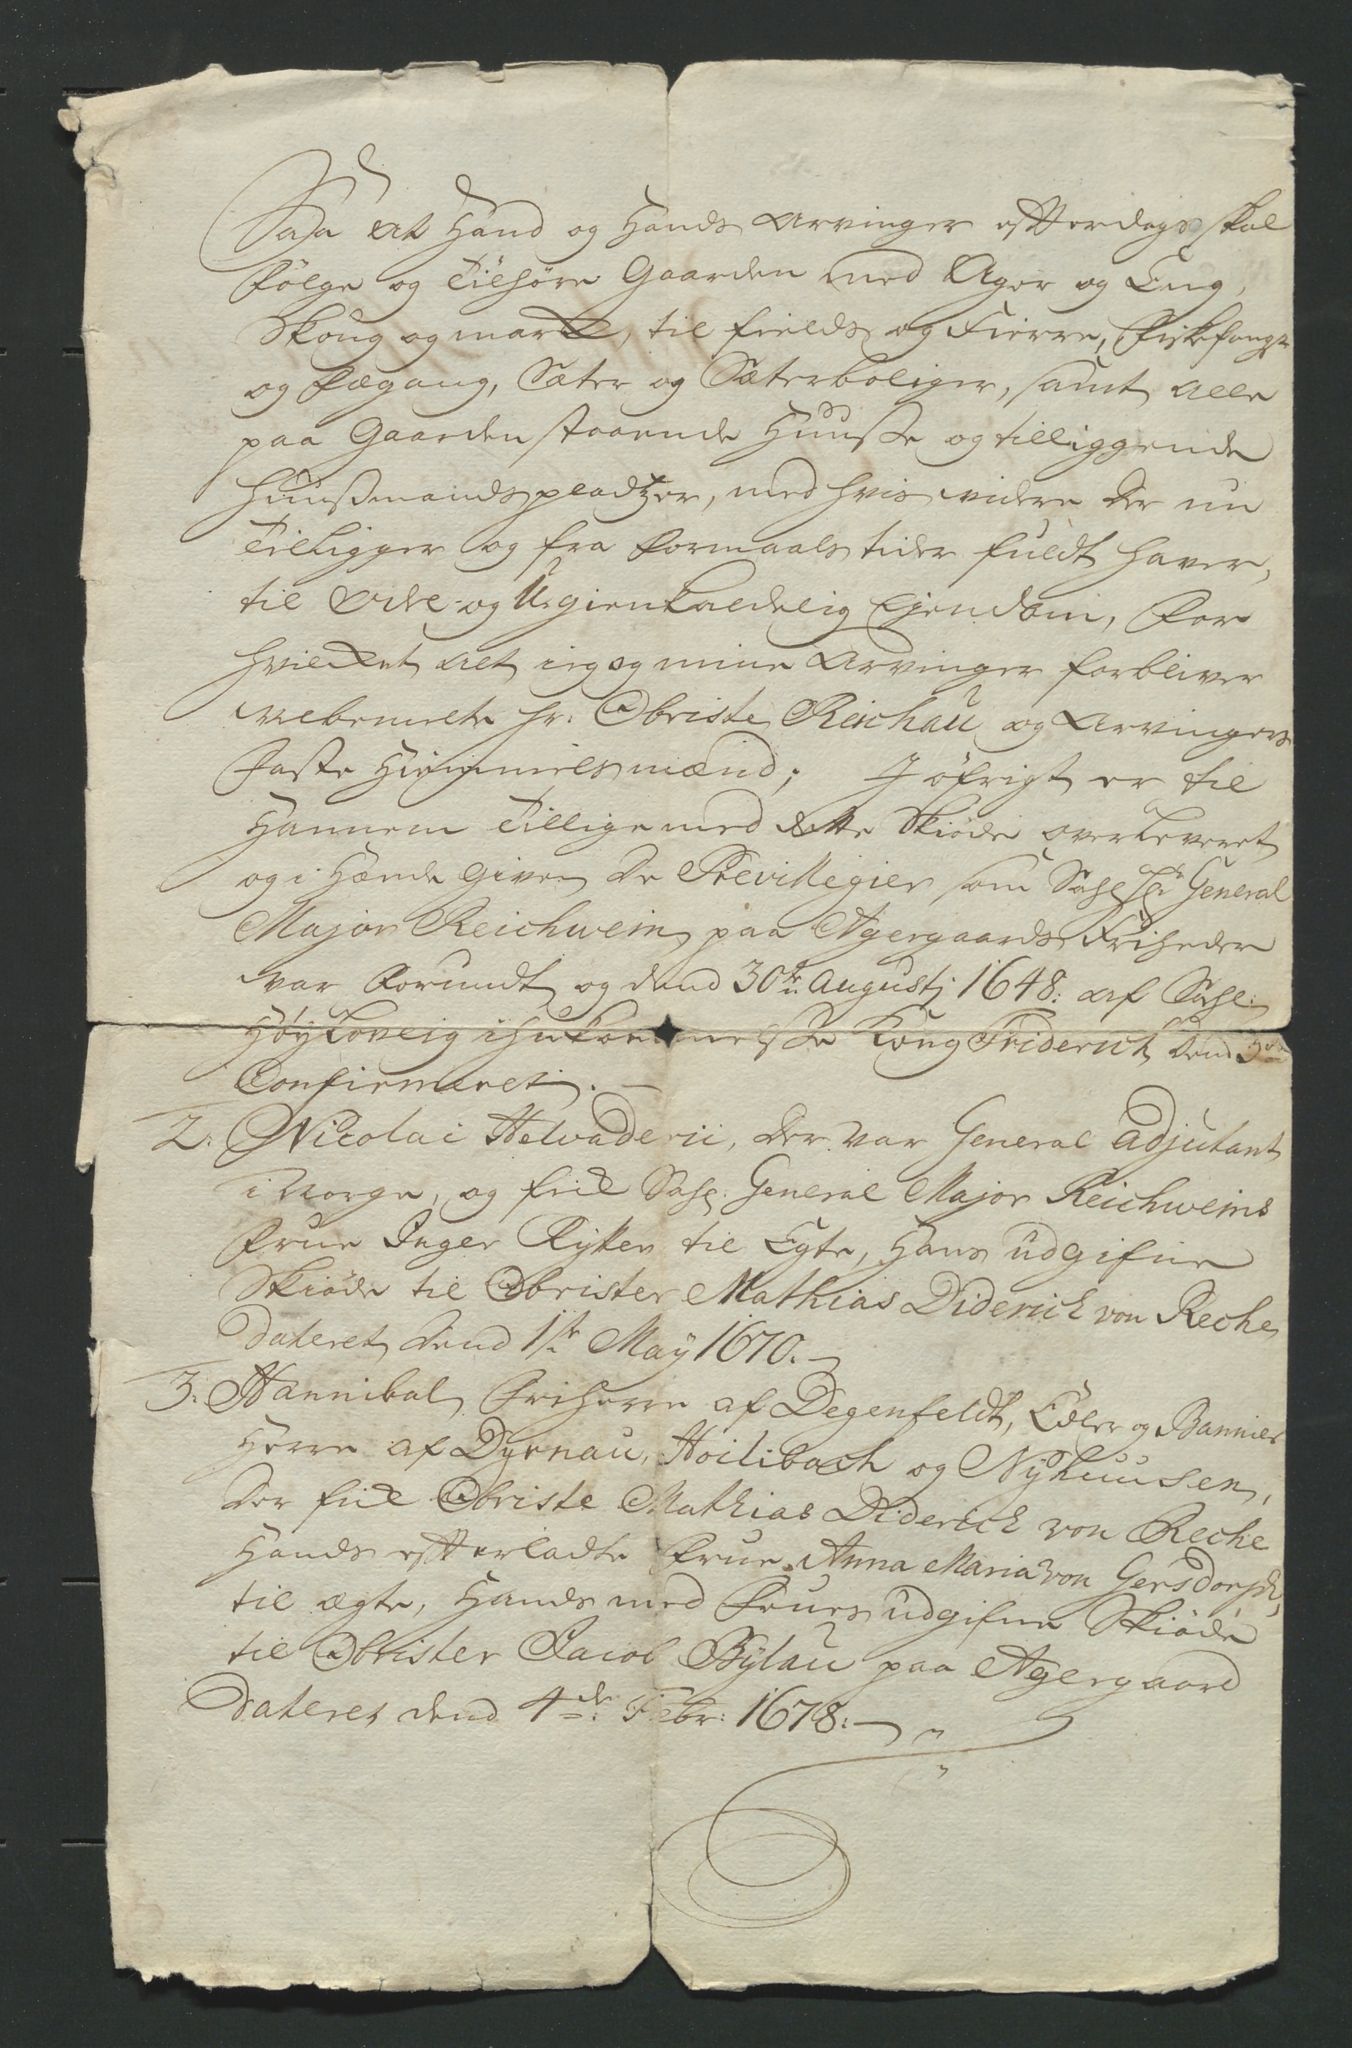 Saa at Hand og Hands Arvinger effterdags skal
følge og Tilhøre Gaarden med Ager og Eng,
Skoug og marck, til fields og Fierre, Fiskefangst
og Fægang, Sæter og Sæterboliger, samt alle
paa Gaarden staaende Huuse og tilliggende
Huusmands pladtzer, med hvis videre der nu
Tilligger og fra formaals tider fuldt haver,
til Odel og Uigienkaldelig Ejendom, for
hvilcket alt ieg og mine Arvinger forbliver
velbemelte hr: Obriste Reichau og Arvingers
Faste Hiemmelsmænd; I øfrigt er til
Hannem Tillige med dette Skiøde overleveret
og i Hænde given de Previllegier som Sahl: Hr: General
Major Reichwein paa Agergaards Friheder
var forundt og dend 30te Augustj 1648: af Sahl:
Høylovlig ihukommelse Kong Friderich dend 3die
Confirmeret. —
2: Nicolai Helvaderii, der var General Adjutant
i Norge, og fick Sahl: General Major Reichweins
Frue Inger Rytter til Egte, Hans udgifne
Skiøde til Obrister Mathias Diderich von Reche
Dateret dend 1ste May 1670. —
3: Hannibal Friherre af Degenfeldt, Edler og Bannier
Herre af Dyrnau, Hoilibach og Nyhuusen,
der fick Obriste Mathias Diderich von Reche
Hands effterladte Frue Anna Maria von Gersdorph,
til ægte, Hands med Frues udgifne Skiøde
til Obrister Jacob Bylau paa Agergaard
Dateret dend 4de: Febr: 1678: —